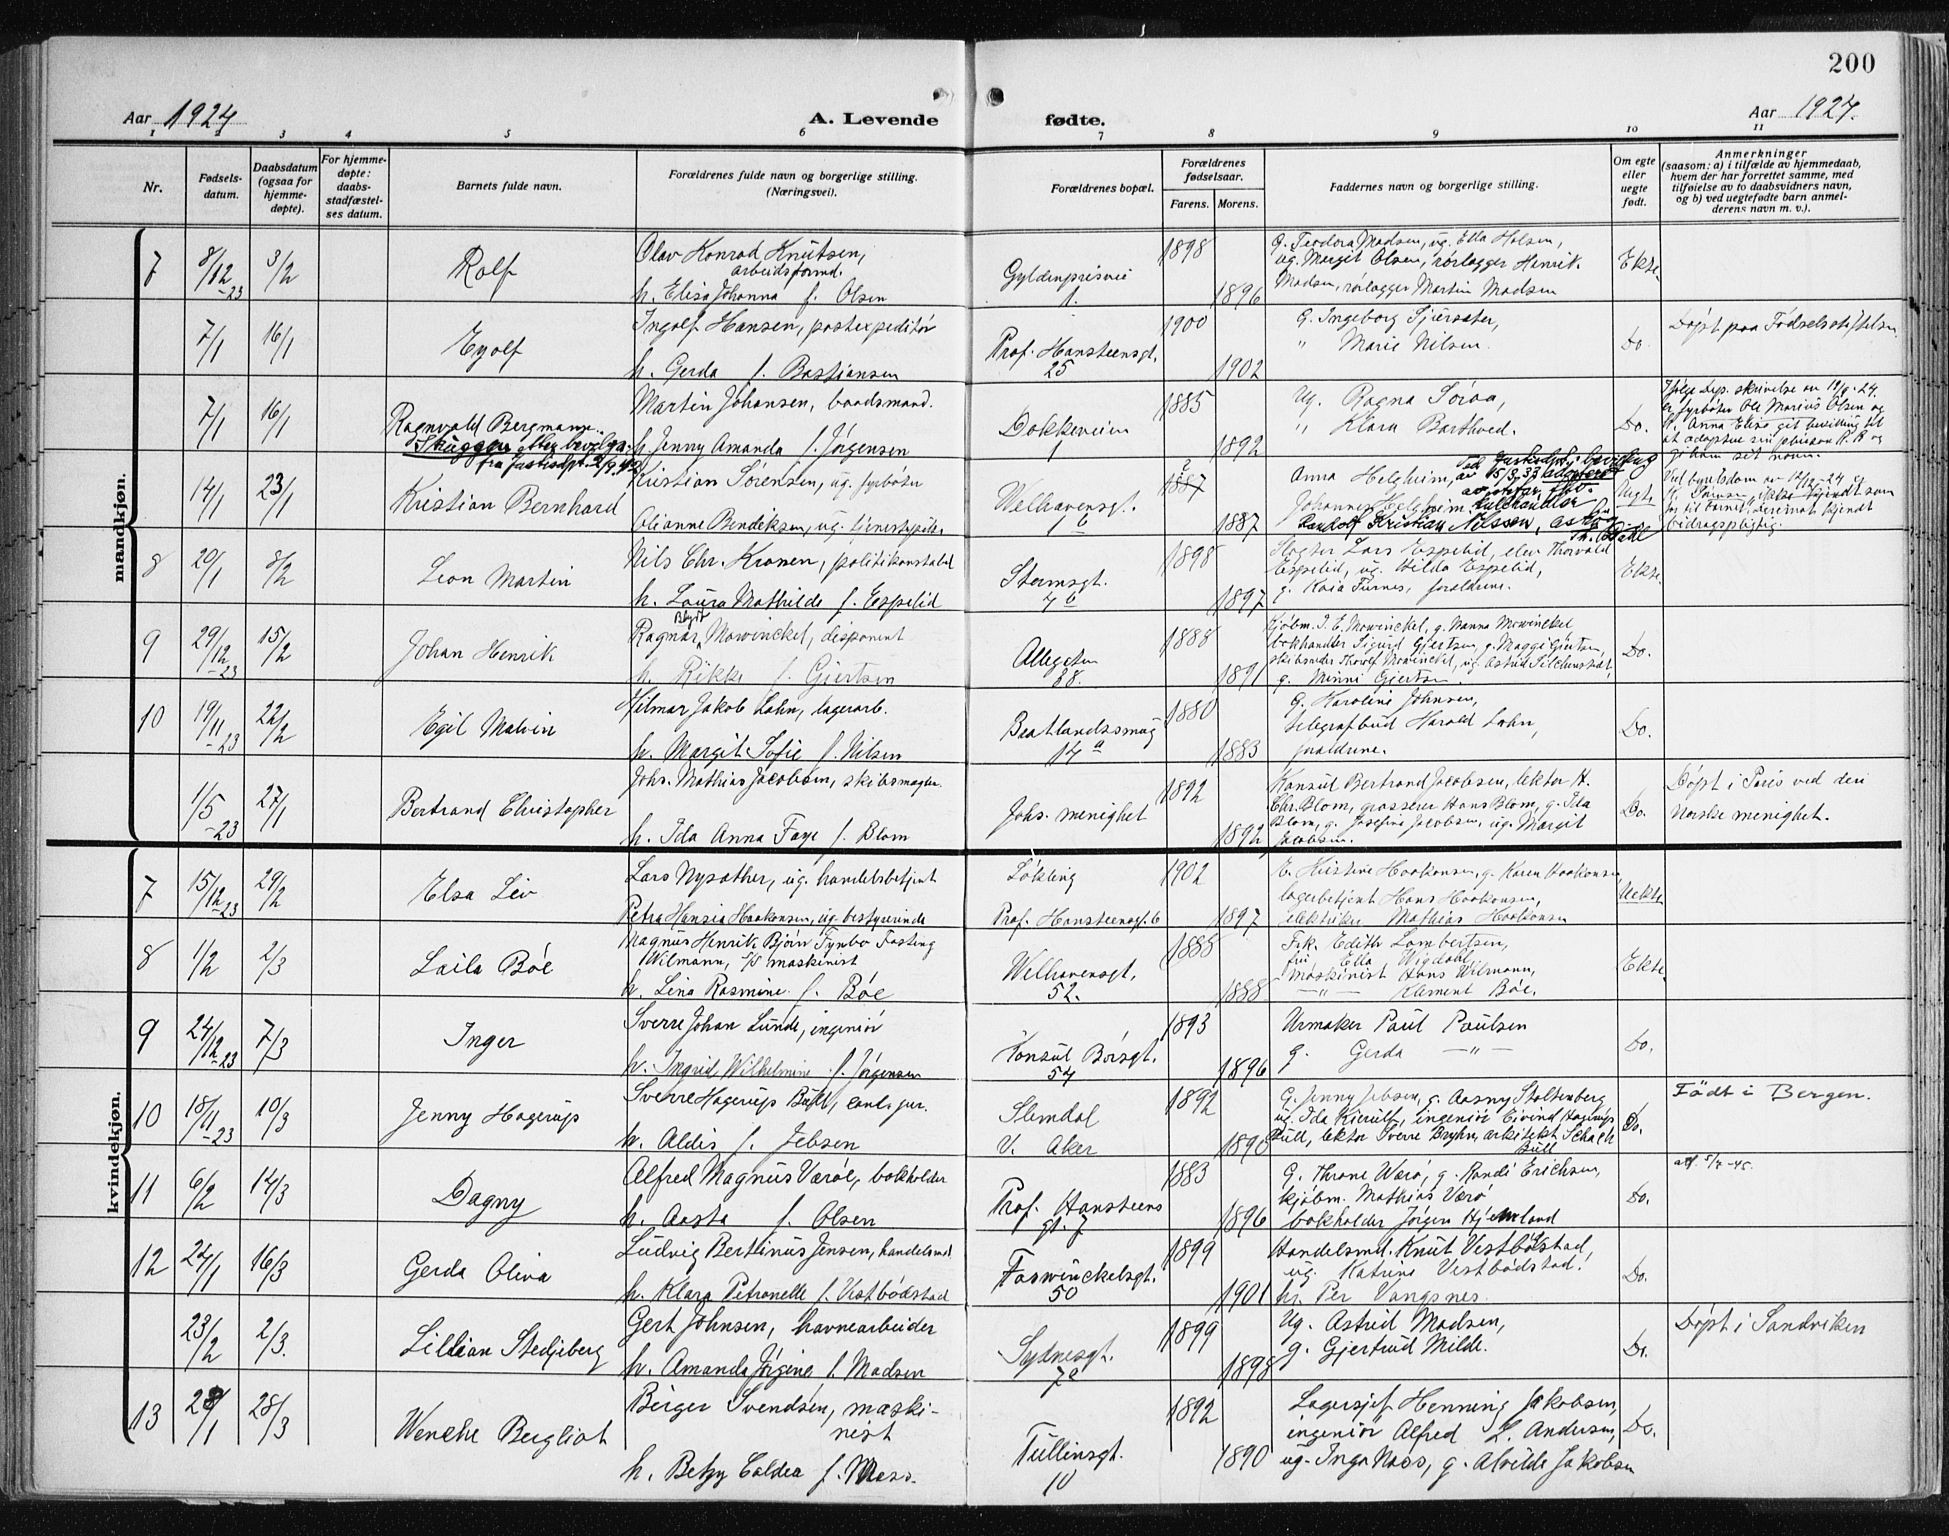 200
Aar 1924
A. Levende
fødte.
Aar 1924.
1 2 3 4 5 6 7 8 9 10 11
Nr.
Fødsels-
datum.
Daabsdatum
(ogsaa for
hjemme-
døpte).
For hjemme-
døpte:
daabs-
stadfæstel-
ses datum.
Barnets fulde navn.
Forældrenes fulde navn og borgerlige stilling.
(Næringsvei).
Forældrenes bopæl.
Forældrenes
fødselsaar.
Farens. Morens.
Faddernes navn og borgerlige stilling.
Om egte
eller
uegte
født.
Anmerkninger
(saasom: a) i tilfælde av hjemmedaab,
hvem der har forrettet samme, med
tilføielse av to daabsvidners navn,
og b) ved uegtefødte barn anmel-
derens navn m. v.).
mandkjøn.
7 8/12-23 3/2 Rolf
Olav Konrad Knutsen,
arbeidsformd.
h. Elisa Johanna f. Olsen
Gyldenprisvei
1.
1898 1896
G. Teodora Madsen, ug. Ella Holsen,
ug. Mergit Olsen, rørlægger Henrik
Madsen, rørlægger Martin Madsen
Ekte
7/1 16/1 Eyolf
Ingolf Hansen, postexpeditør
h. Gerda f. Bastiansen
Prof. Hansteensgt.
25
1900 1902
G. Ingeborg
" Marie Nilsen.
Do.
Døpt paa Fødselsstiftelsen
7/1 16/1 Ragnvald Bergmann
fra Justisdpt. 2/9.42
Martin Johansen, baadsmand.
h. Jenny Amanda f. Jørgensen
Dokkeveien
1
1885 1892
Ug. Ragna Sørva,
" Klara Barthved.
Do.
Ifølge Dep. skrivelse av 19/9-24
er fyrbøter Ole Marius Olsen og
h. Anna Elise git bevilling til
at adoptere sin pleiesøn R. B og
gi ham sit navn.
14/1 23/1 Kristian Bernhard
Kristian Sørensen, ug. fyrbøter
Olianne Bendiksen, ug. tjenestepike.
Welhavensgt.
1 b
1887 1887
Anna Helgheim,
Johannes Helgheim
Kristian Nilssen,
Uegte
bidragspligtig.
8 20/1 8/2 Leon Martin
Nils Chr. Kronen, politikonstabel
h. Laura Mathilde f. Espelid
Stormsgt.
7 b
1898 1897
Slagter Lars Espelid, elev Thorvald
Espelid, ug. Hilda Espelid,
g. Kaia Furnes, forældrene.
Ekte
9 29/12-23 15/2 Johan Henrik
Ragnar Mowinckel, disponent
h. Rikke f. Giertsen
Allegaten
88.
1888 1891
Kjøbm. J. E. Mowinckel, g. Nanna Mowinckel
bokhandler Sigurd Giertsen, g. Maggi Giertsen,
skibsreder Thorolf Mowinckel, ug. Astrid
g. Minni Giertsen.
Do.
10 19/11-23 22/2 Egil Malvin
Hilmar Jakob Lahn, lagerarb.
h. Margit Sofie f. Nilsen
Bratlandssmug
14 a
1880 1883
G. Karoline Johnsen,
telegrafbud Harald Lahn,
forældrene.
Do.
1/5-23 27/1 Bertrand Christopher
Johs. Mathias Jacobsen, skibsmægler
h. Ida Anna Faye f. Blom
Johs. menighet
1892 1892
Konsul Bertrand Jacobsen, lektor H.
Chr. Blom, grosserer Hans Blom, g. Ida
Blom, g. Josefine Jacobsen, ug. Margit
Jacobsen.
Do.
Døpt i Paris ved den
Norske menighet.
kvindekjøn.
7 15/12-23 29/2 Elsa Liv
Lars Nysæther, ug. handelsbetjent
Petra Hansia Haakonsen, ug. bestyrerinde
Løkling
Prof. Hansteensgt. 6
1902 1897
E. Kristine Haakonsen, g. Karen Haakonsen,
lagerbetjent Hans Haakonsen,
elektriker Mathias Haakonsen
Uekte
8 1/2 2/3 Laila Bøe
Magnus Henrik Bjørn Fynbo Fasting
Wilmann, S/S maskinist
h. Lina Rasmine f. Bøe
Welhavensgt.
52.
1885 1888
Frk. Edith Lambertsen,
fru Ella Wigdahl,
maskinist Hans Wilmann,
— " — Klement Bøe.
Ekte
9 24/12-23 7/3 Inger
Sverre Johan Lunde, ingeniør
h. Ingrid Wilhelmine f. Jørgensen
Konsul Børsgt.
54
1893 1896
Urmaker Paul Paulsen
g. Gerda — " —
Do.
10 18/11-23 10/3 Jenny Hagerup
Sverre Hagerup Bull, cand. jur.
h. Aldis f. Jebsen
Slemdal
V. Aker
1892 1890
G. Jenny Jebsen, g. Aasny Stoltenberg
ug. Ida Kierulf, ingeniør Eivind Hagerup
Bull, lektor Sverre Bryhn, arkitekt Schach
Bull
Do.
Født i Bergen.
11 6/2 14/3 Dagny
Alfred Magnus Værøe, bokholder
h. Aasta f. Olsen
Prof. Hansteens
gt. 7
1883 1896
G. Thrane Værø, g. Randi Erichsen,
kjøbm. Mathias Værø
bokholder Jørgen Hjemland
Do.
att. 5/7-45.
12 24/1 16/3 Gerda Oliva
Ludvig Bertinus Jensen, handelsmd
h. Klara Petronelle f. Vestbødstad
Foswinckelsgt.
50
1899 1901
Handelsmd. Knut Vestbødstad,
ug. Katrine Vestbødstad.
hr. Per Vangsnes.
Do.
23/2 2/3. Lillian Stedjeberg
Gert Johnsen, havnearbeider
h. Amanda Jørgine f. Madsen
Sydnesgt.
7 a
1899 1898
Ug. Astrid Madsen,
g. Gjertrud Milde.
Do.
Døpt i Sandviken
13 28/1 28/3 Wenche Bergliot
Berger Svendsen, maski-
nist
h. Betzy Caldea f. Næss.
Tullinsgt.
10
1892 1890
Lagersjef Henning Jakobsen,
ingeniør Alfred L. Andersen,
ug. Inga Næss, g. Alvilde Jakobsen
Do.